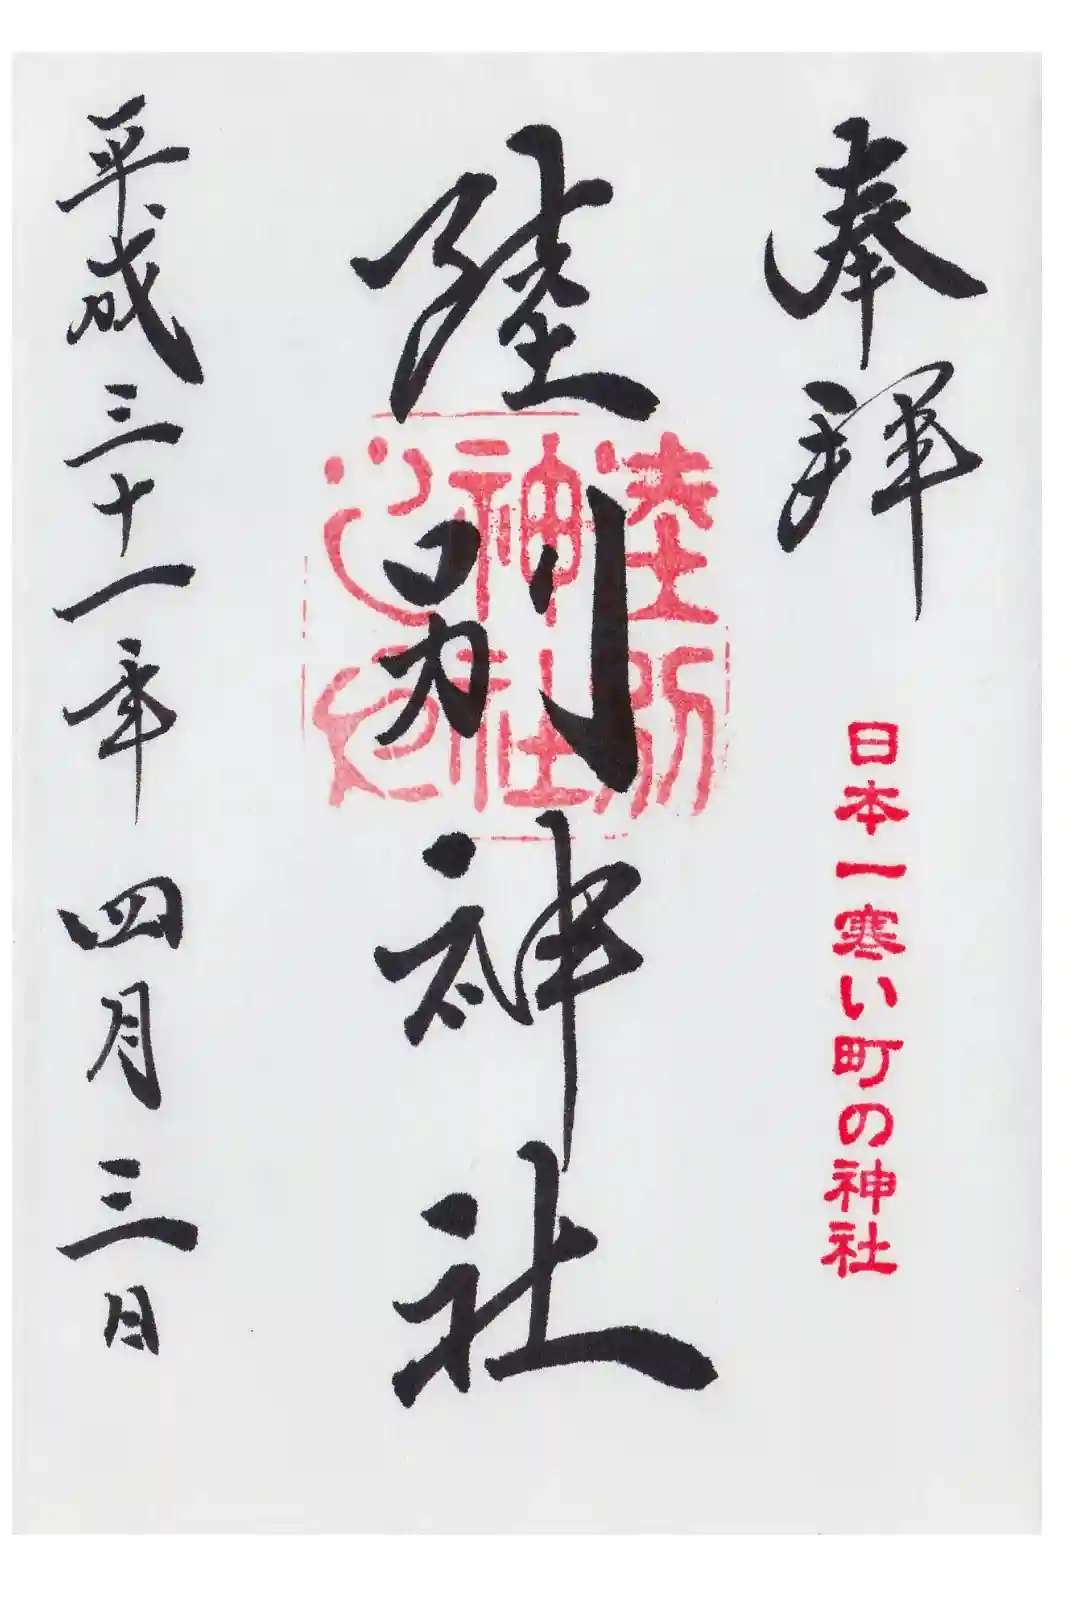 奉拜
日本一寒い町の神社
陸別神社
陸別
神社
之印
平成三十一年 四月三日